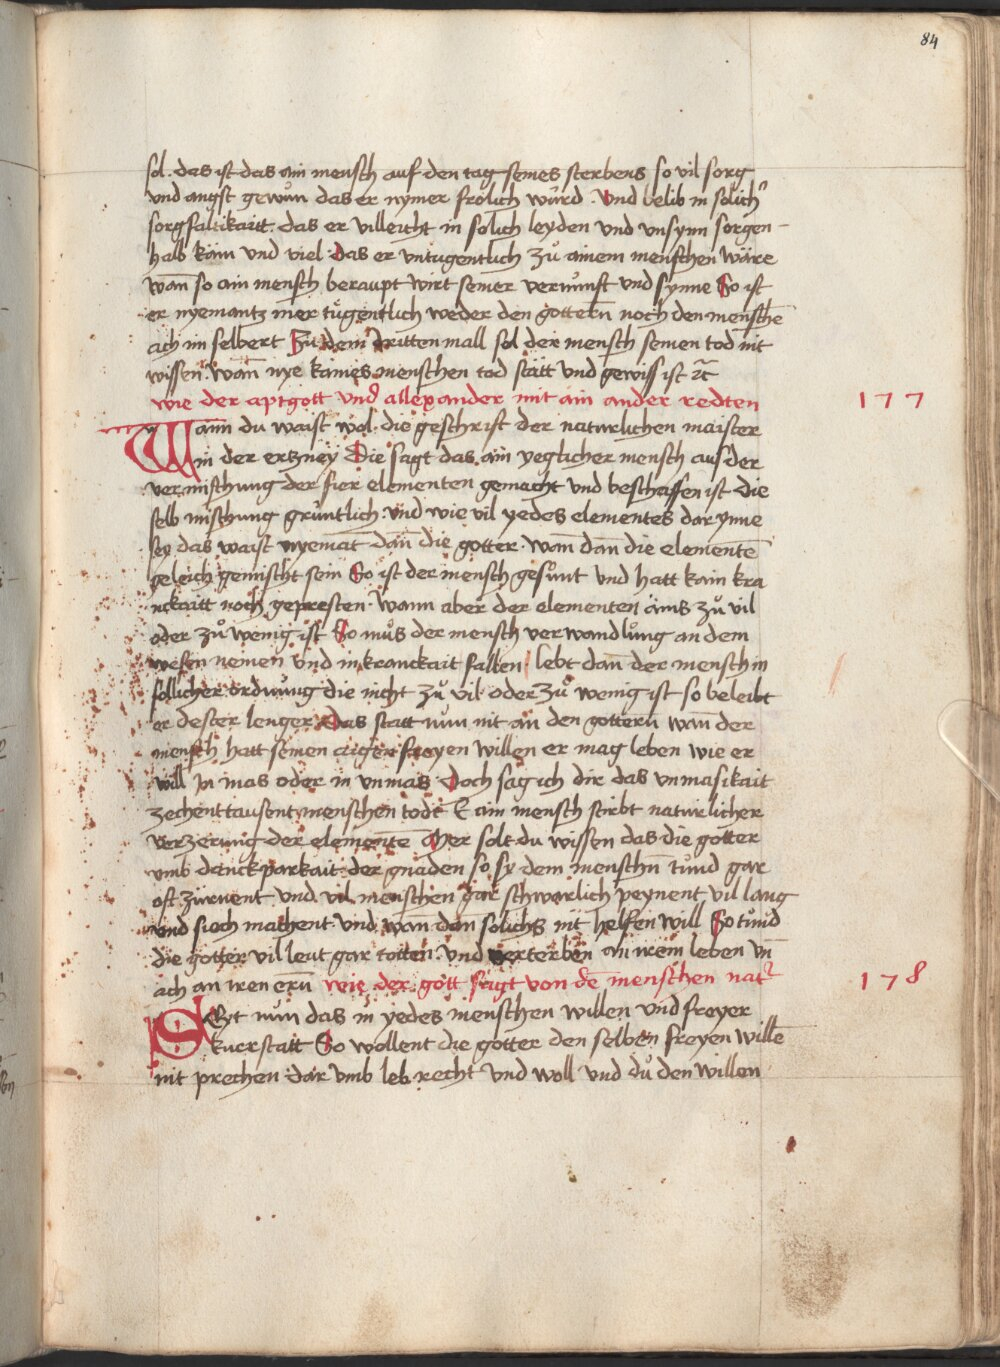 84
sol. das ist das ain mensch auf den tag seines sterbens so vil sorg
vnd angst gewun̄ das er nymer frölich wurd. Vnd belib in solich͛
sorgfaltikaitt. das er villeicht in solich leyden vnd vnsynn sorgen-
halb käm vnd viel. das er vntugentlich zů ainem menschen wäre
wan̄ so ain mensch beraupt wirt seiner vernunft vnd synne So ist
er nyemantz mer tugentlich weder den gottern noch den mensche͞
ach im selbert Zu dem dritten mall sol der mensch seinen tod nit
wissen. wan̄ nye kaines menschen tod stätt vnd gewiss ist ⁊c̄
wie der aptgott vnd͛ allexander mit ain ander redten 177
Wann du waist wol. die geschrift der naturlichen maister
in der ertzney Die sagt das ain yeglicher mensch aus der
vermischung der fier elementen gemacht vnd beschaffen ist die
selb mischung gruntlich. vnd wie vil yedes elementes dar ynne
sey das waist nyemat dan̄ die gotter. wan̄ dan̄ die elemente͞
geleich gemischt sein So ist der mensch gesunt vnd hatt kain kra
nckaitt noch gepresten. wann aber der elementen äins zů vil
oder zů wenig ist So můs der mensch verwandlung an dem
wesen nemen vnd in kranckait fallen lebt dan̄ der mensch in
sollicher ordnung die nicht zů vil oder zů wenig ist so beleibt
er dester lenger Das statt nun nit an den gottern wan̄ der
mensch hatt seinen aigen freyen willen er mag leben wie er
will In mas oder in vnmas Doch sag ich dir das vnmasikait
zechenttausent menschen todt E ain mensch stirbt naturlicher
verzerung der elemente͞ Mer solt du wissen das die gotter
vmb danckparkait der gnaden so sy dem menschn̄ tůnd gar
oft zürnent vnd vil menschen gar schwerlich peynent vil lang
vnd siech machent vnd wan̄ dan̄ solichs nit helfen will So tůnd
die gotter vil leut gar totten vnd verterben an irem leben vn̄
ach an iren ern̄ wie der gott sagt von de͞ menschen nat͛ 178
Seyt nun das in yedes menschen willen vnd freyer
kuerstatt So wollent die gotter den selben freyen wille͞
nit prechen dar vmb leb recht vnd woll vnd dů den willen